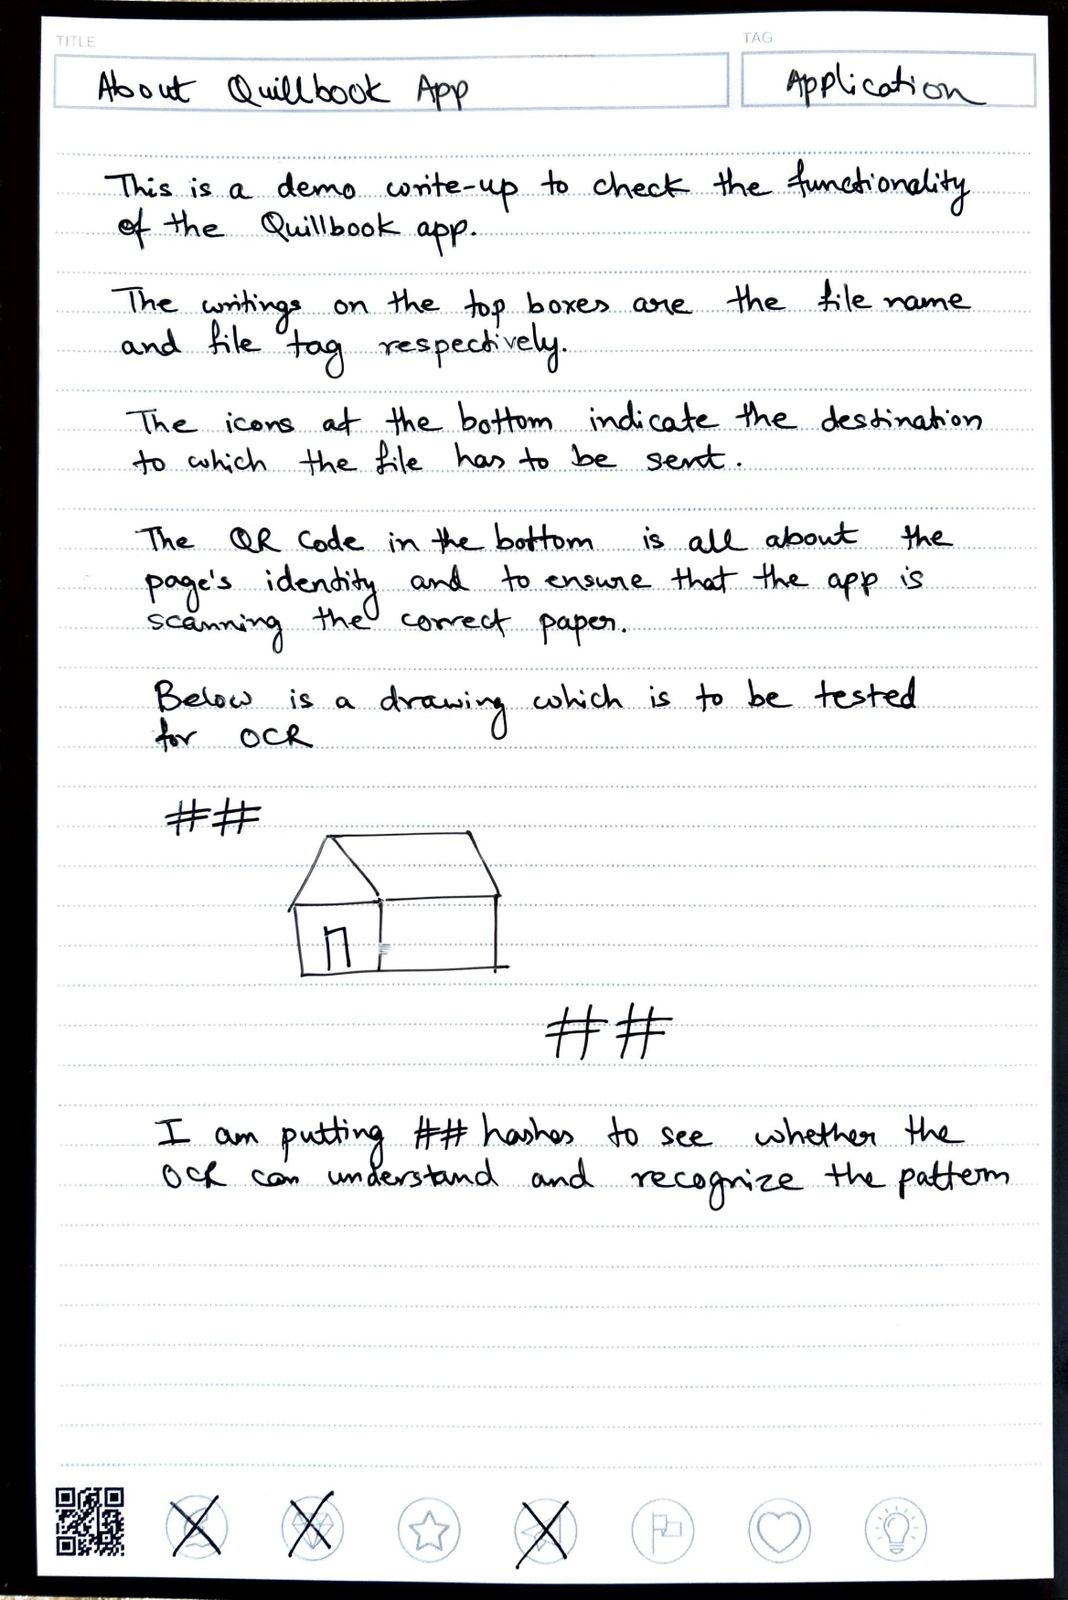 TITLE
TAG
About Quillbook App
Application
This is a demo write-up to check the functionality
of the Quillbook app.
The writings on the top boxes are the file name
and file tag respectively.
The icons at the bottom indicate the destination
to which the file has to be sent.
The QR Code in the bottom is all about the
page's identity and to ensure that the app is
scanning the correct paper.
Below is a drawing which is to be tested
for OCR
##
##
I am putting ## hashes to see whether the
OCR can understand and recognize the pattern